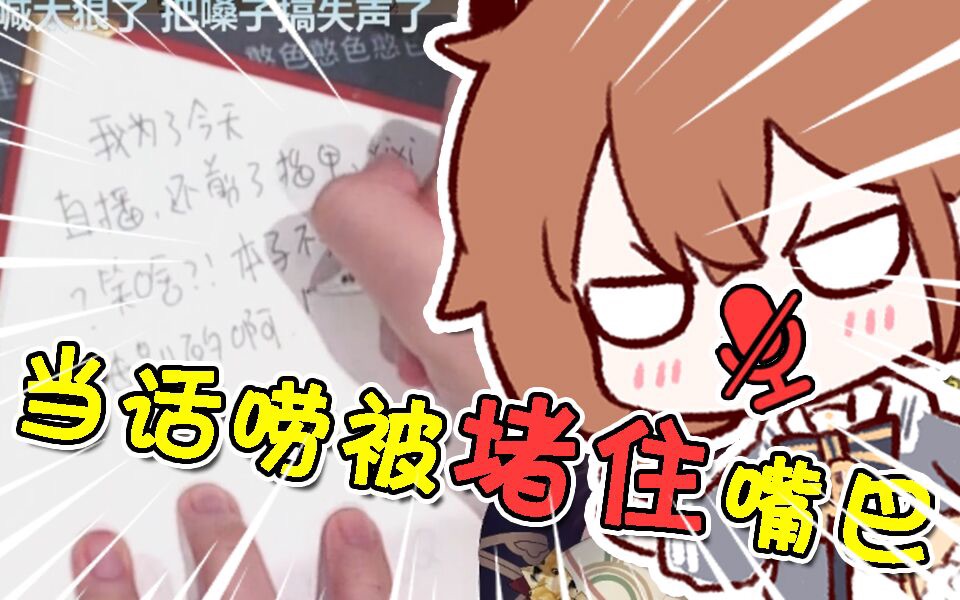 喊太狠了 把嗓子搞失声了
憨色憨色憨色
我为了今天
直播,还剪了指甲,xixi
?笑啥?!本子不
的啊.
当话唠被堵住嘴巴